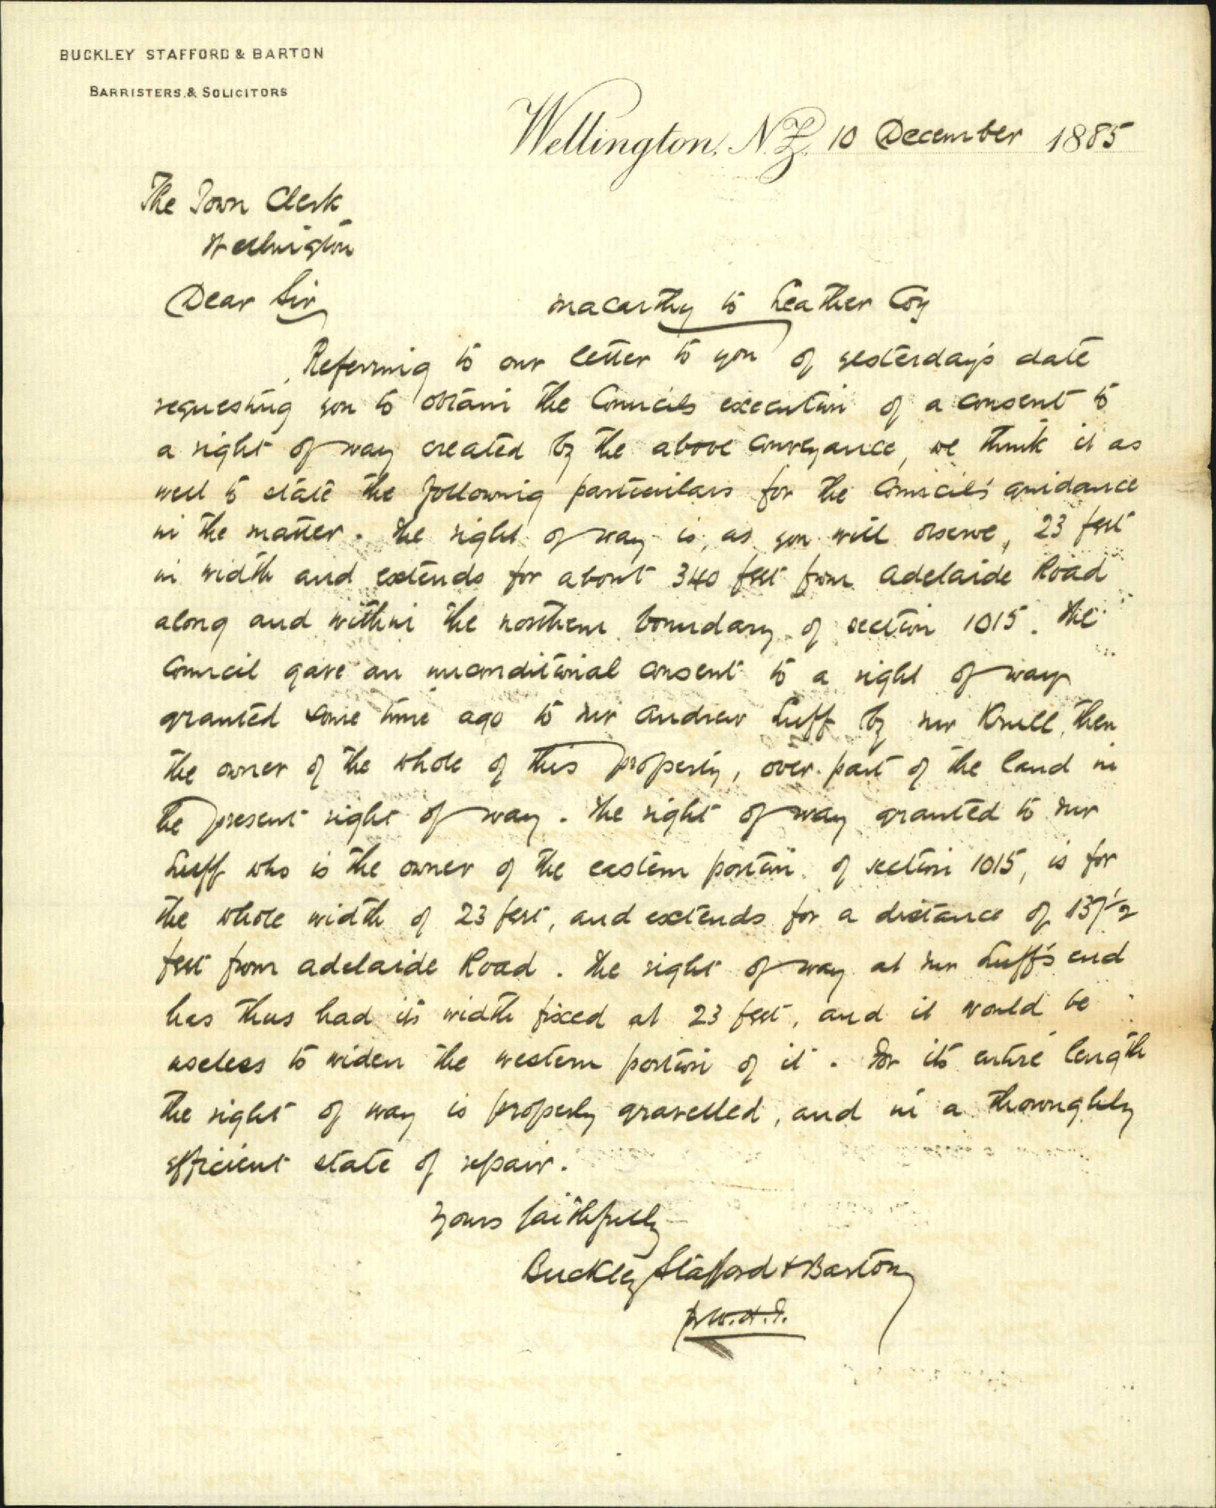 BUCKLEY STAFFORD & BARTON
BARRISTERS & SOLICITORS
Wellington, N.Z. 10 December 1885
The Town Clerk
Wellington
Dear Sir,
Macarthy to Leather Coy
Referring to our letter to you of yesterday's date
requesting you to obtain the Councils execution of a consent to
a right of way created by the above conveyance, we think it as
well to state the following particulars for the Council's guidance
in the matter. The right of way is, as you will observe, 23 feet
in width and extends for about 340 feet from Adelaide Road
along and within the northern boundary of section 1015. The
Council gave an unconditional consent to a right of way
granted some time ago to Mr Andrew Luff by Mr Krull, then
the owner of the whole of this property, over part of the land in
the present right of way. The right of way granted to Mr
Luff who is the owner of the eastern portion of section 1015, is for
the whole width of 23 feet, and extends for a distance of 137 1/2
feet from Adelaide Road. The right of way at Mr Luff's end
has thus had its width fixed at 23 feet, and it would be
useless to widen the western portion of it. For its entire length
the right of way is properly gravelled, and in a thoroughly
efficient state of repair.
Yours faithfully
Buckley Stafford & Barton